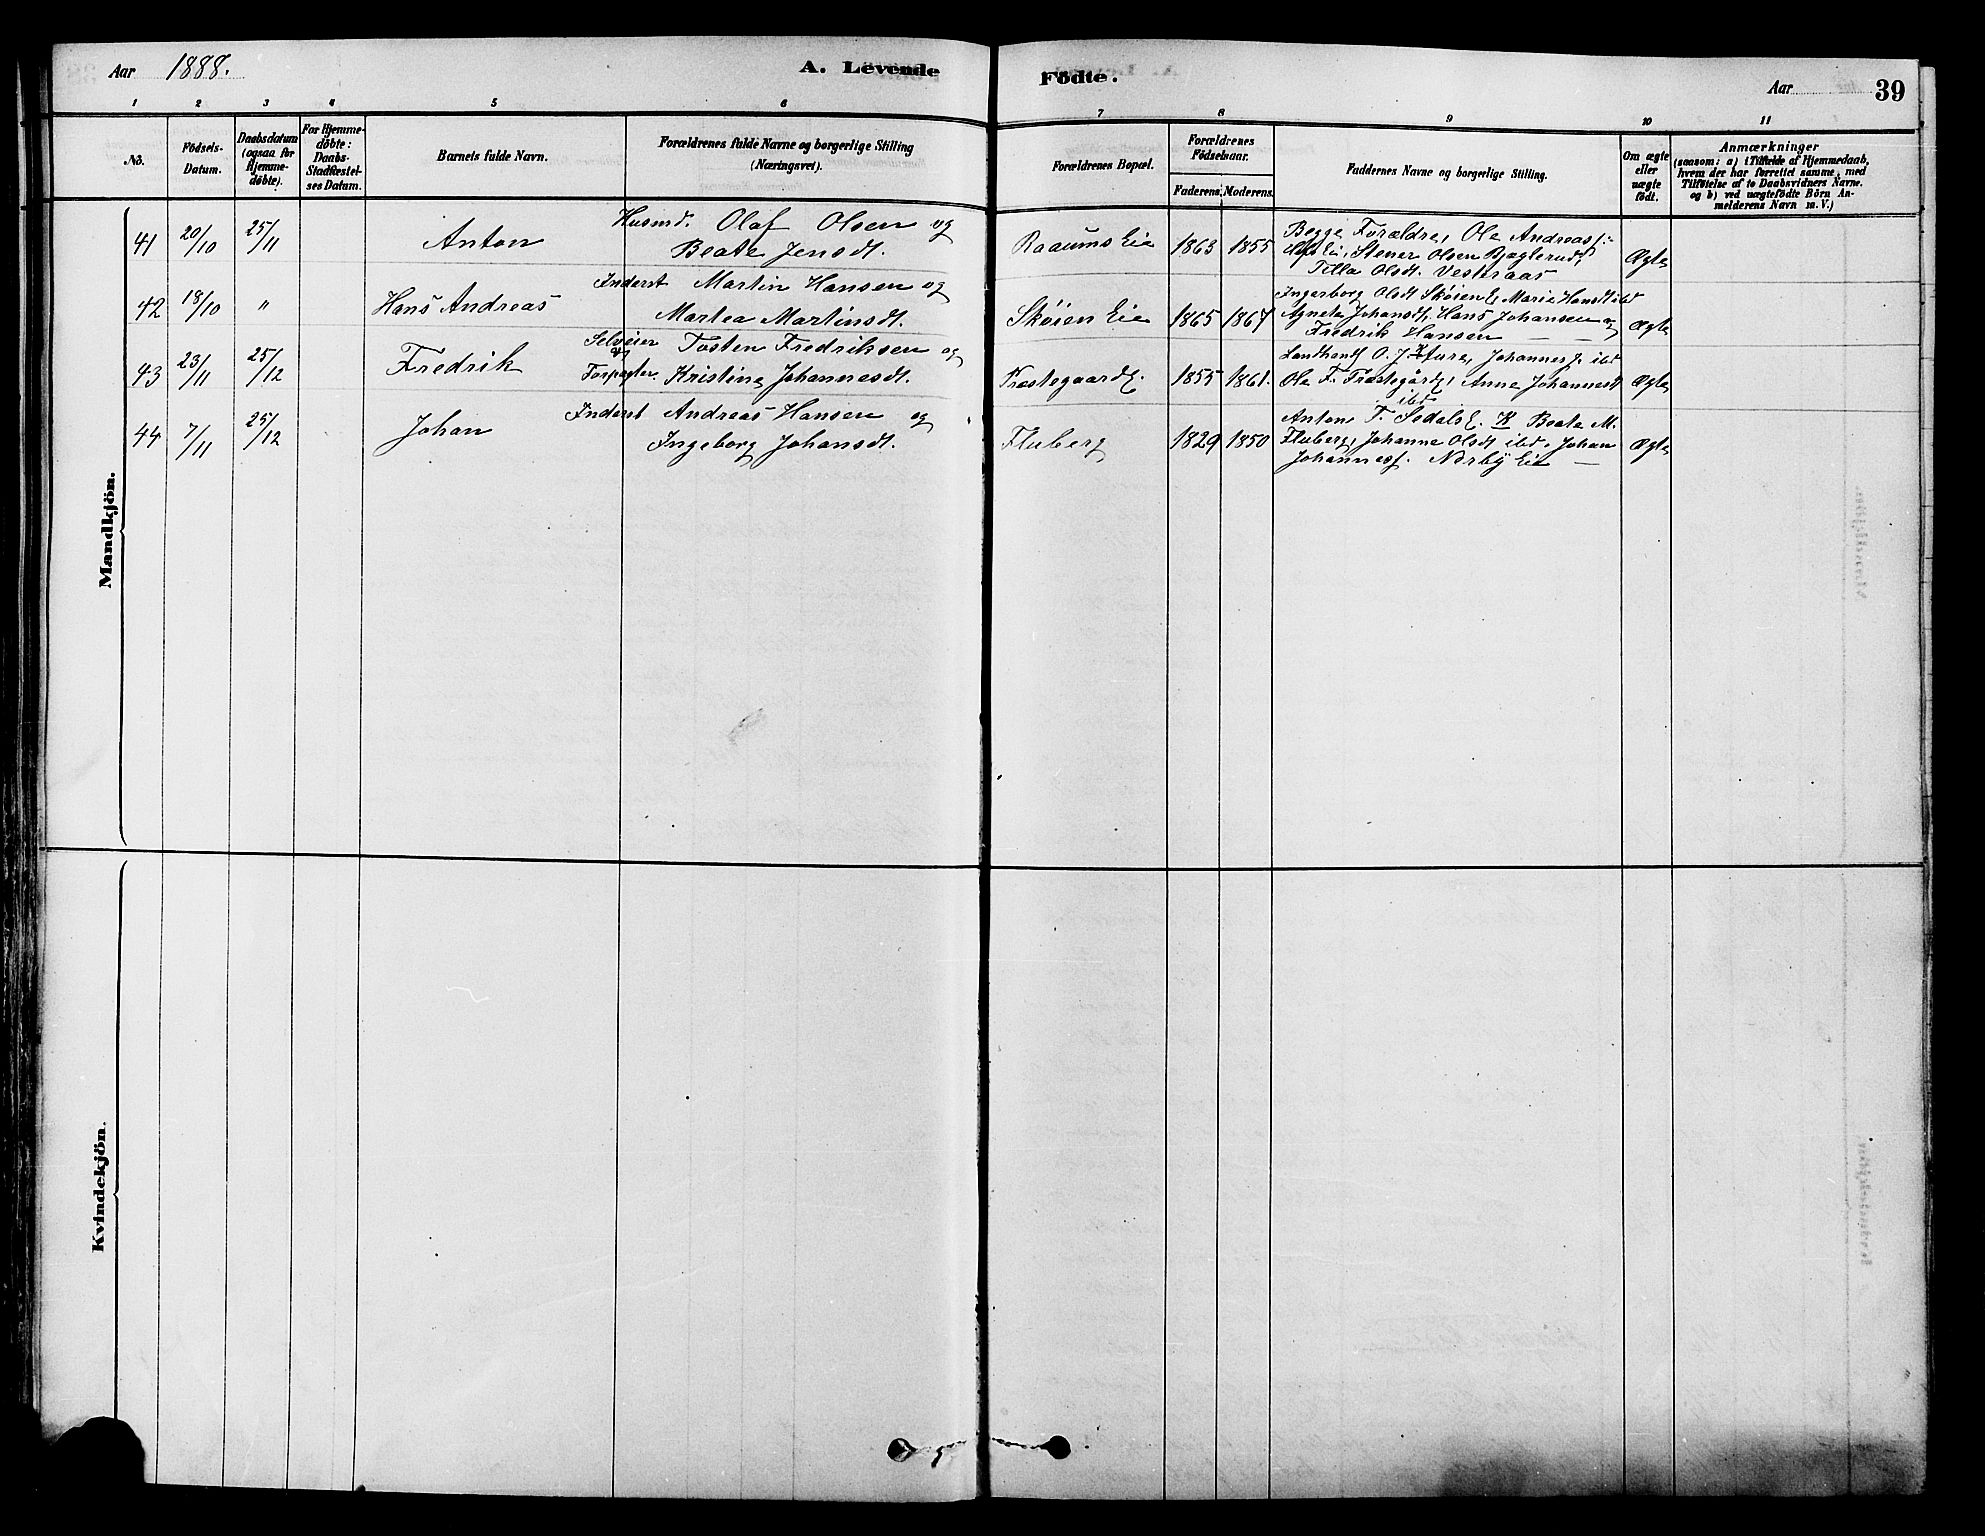 Aar 1888.
A. Levende
Födte.
Aar
39
1 2 3 4 5 6 7 8 9 10 11
No.
Födsels-
Datum.
Daabsdatum
(ogsaa for
Hjemme-
döbte).
For Hjemme-
döbte:
Daabs-
Stadfæstel-
ses Datum.
Barnets fulde Navn.
Forældrenes fulde Navne og borgerlige Stilling
(Næringsvei).
Forældrenes Bopæl.
Forældrenes
Födselsaar.
Faderens. Moderens.
Faddernes Navne og borgerlige Stilling.
Om ægte
eller
uægte
födt.
Anmærkninger
(saasom: a) i Tilfælde af Hjemmedaab,
hvem der har forrettet samme, med
Tilföielse af to Daabsvidners Navne.
og b) ved uægtefödte Börn An-
melderens Navn m. V.)
Mandkjön.
41 20/10 25/11 Anton
Husmd. Olaf Olsen og
Beate Jensdt.
Raaums Eie 1863 1855
Begge Forældre, Ole Andreass:
Eie, Stener Olsen Bjaglerud,
Tilla Olsdt. Vestraas
Ægte
42 18/10 " Hans Andreas
Inderst Martin Hansen og
Martea Martinsdt.
Skøien Eie 1865 1867
Ingerborg Olsdt Skøien E, Marie Hansdt ibd
Agnete Johansdt, Hans Johansen og
Fredrik Hansen — —
Ægte
43 23/11 25/12 Fredrik
Selveier Tosten Fredriksen og
og
Forpagter. Kristine Johannesdt.
Frøstegaard E. 1855 1861.
Landhandl O. J. Hture, Johannes J. ibd
Ole F. Frøstegård E, Anne Johannesdt
ibd
Ægte
44 7/11 25/12 Johan
Inderst Andreas Hansen og
Ingeborg Johansdt.
Fluberg 1829 1850
Anton T. Sedals E. K Beate M.
Fluberg, Johanne Olsdt ibd. Johan
Johannesf. Nørby Eie —
Ægte
Kvindekjön.